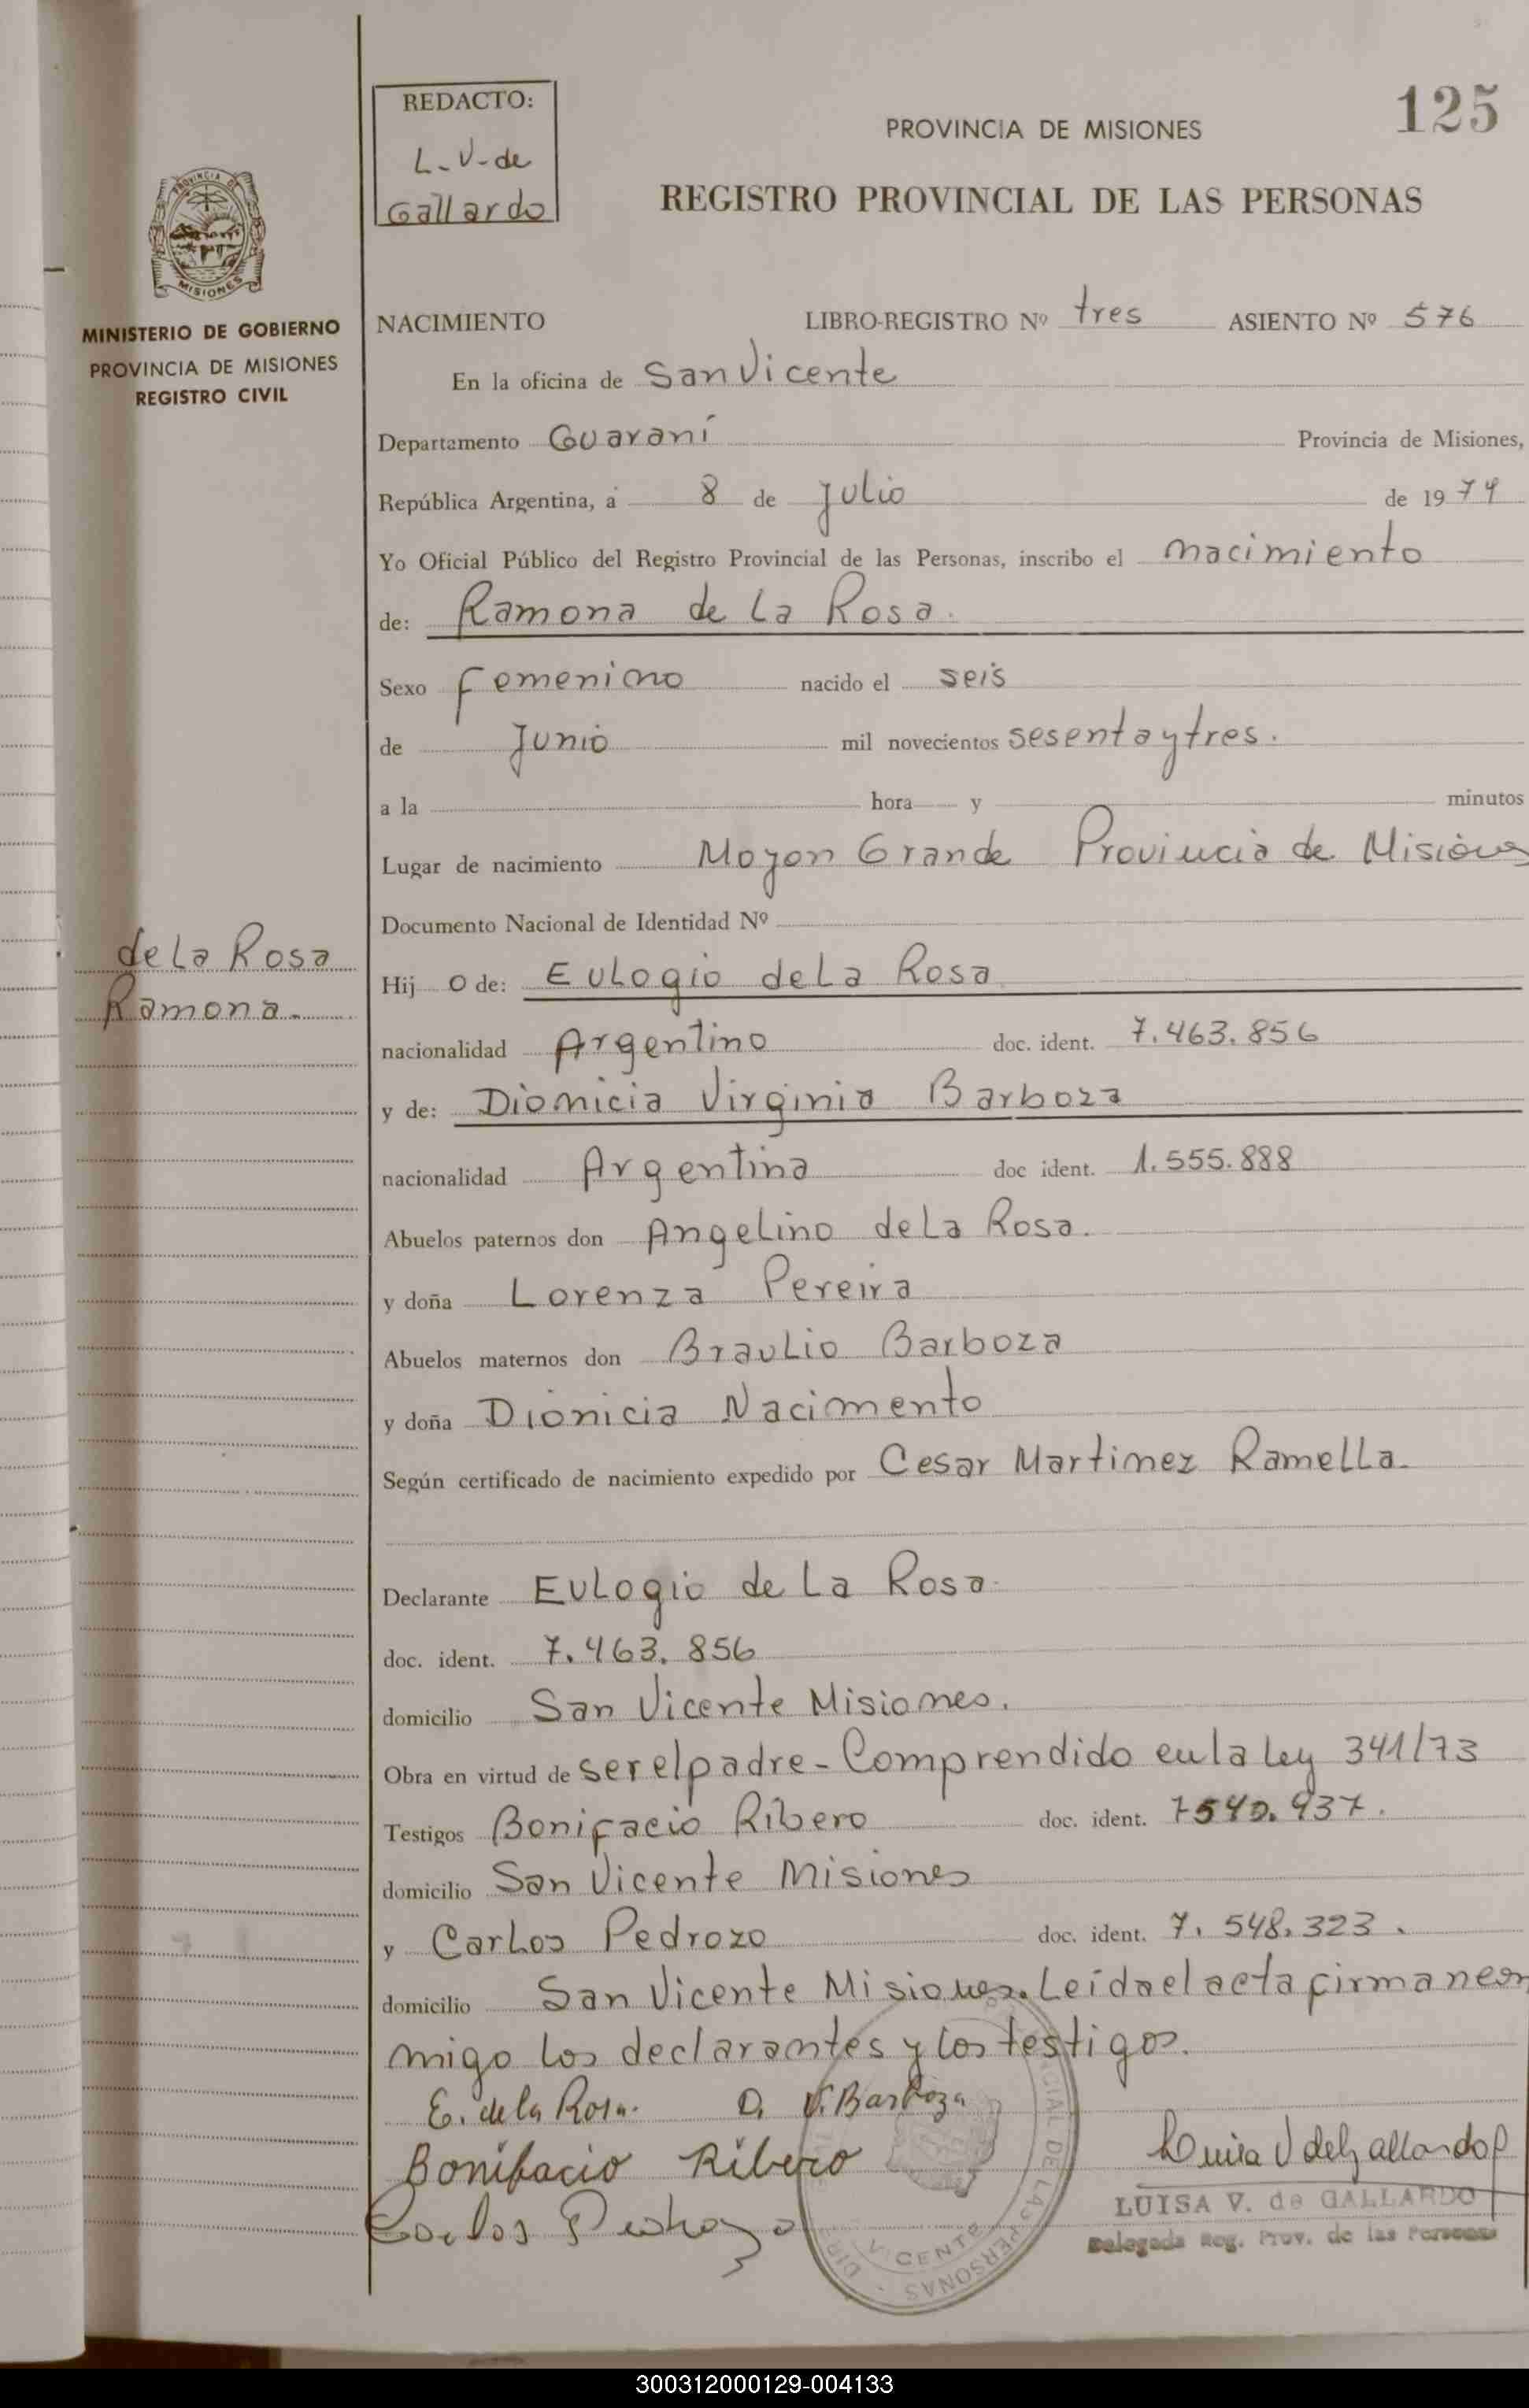 125
REDACTO:
L-V-de
Gallardo
PROVINCIA DE MISIONES
REGISTRO PROVINCIAL DE LAS PERSONAS
PROVINCIA DE
MISIONES
MINISTERIO DE GOBIERNO
PROVINCIA DE MISIONES
REGISTRO CIVIL
NACIMIENTO LIBRO-REGISTRO Nº tres ASIENTO Nº 576
En la oficina de San Vicente
Departamento Guaraní Provincia de Misiones,
República Argentina, a 8 de Julio de 1974
Yo Oficial Público del Registro Provincial de las Personas, inscribo el nacimiento
de: Ramona de La Rosa.
Sexo Femenino nacido el seis
de Junio mil novecientos sesenta y tres.
a la hora y minutos
Lugar de nacimiento Mojon Grande Provincia de Misiones
Documento Nacional de Identidad Nº
de La Rosa
Ramona.
Hij o de: Eulogio de La Rosa
nacionalidad Argentino doc. ident. 7.463.856
y de: Dionicia Virginia Barboza
nacionalidad Argentina doc ident. 1.555.888
Abuelos paternos don Angelino de La Rosa.
y doña Lorenza Pereira
Abuelos maternos don Braulio Barboza
y doña Dionicia Nacimento
Según certificado de nacimiento expedido por Cesar Martinez Ramella.
Declarante Eulogio de La Rosa
doc. ident. 7.463.856
domicilio San Vicente Misiones.
Obra en virtud de ser el padre - Comprendido en la Ley 341/73
Testigos Bonifacio Ribero doc. ident. 7540.937.
domicilio San Vicente Misiones
y Carlos Pedrozo doc. ident. 7.548.323.
domicilio San Vicente Misiones. Leída el acta firman con
migo los declarantes y los testigos.
E. de la Rosa. D. V. Barboza
Bonifacio Ribero
Carlos Pedrozo
Luisa V de Gallardo
LUISA V. de GALLARDO
Delegada Reg. Prov. de las Personas
VICENTE
CIAL DE LAS PERSONAS
300312000129-004133